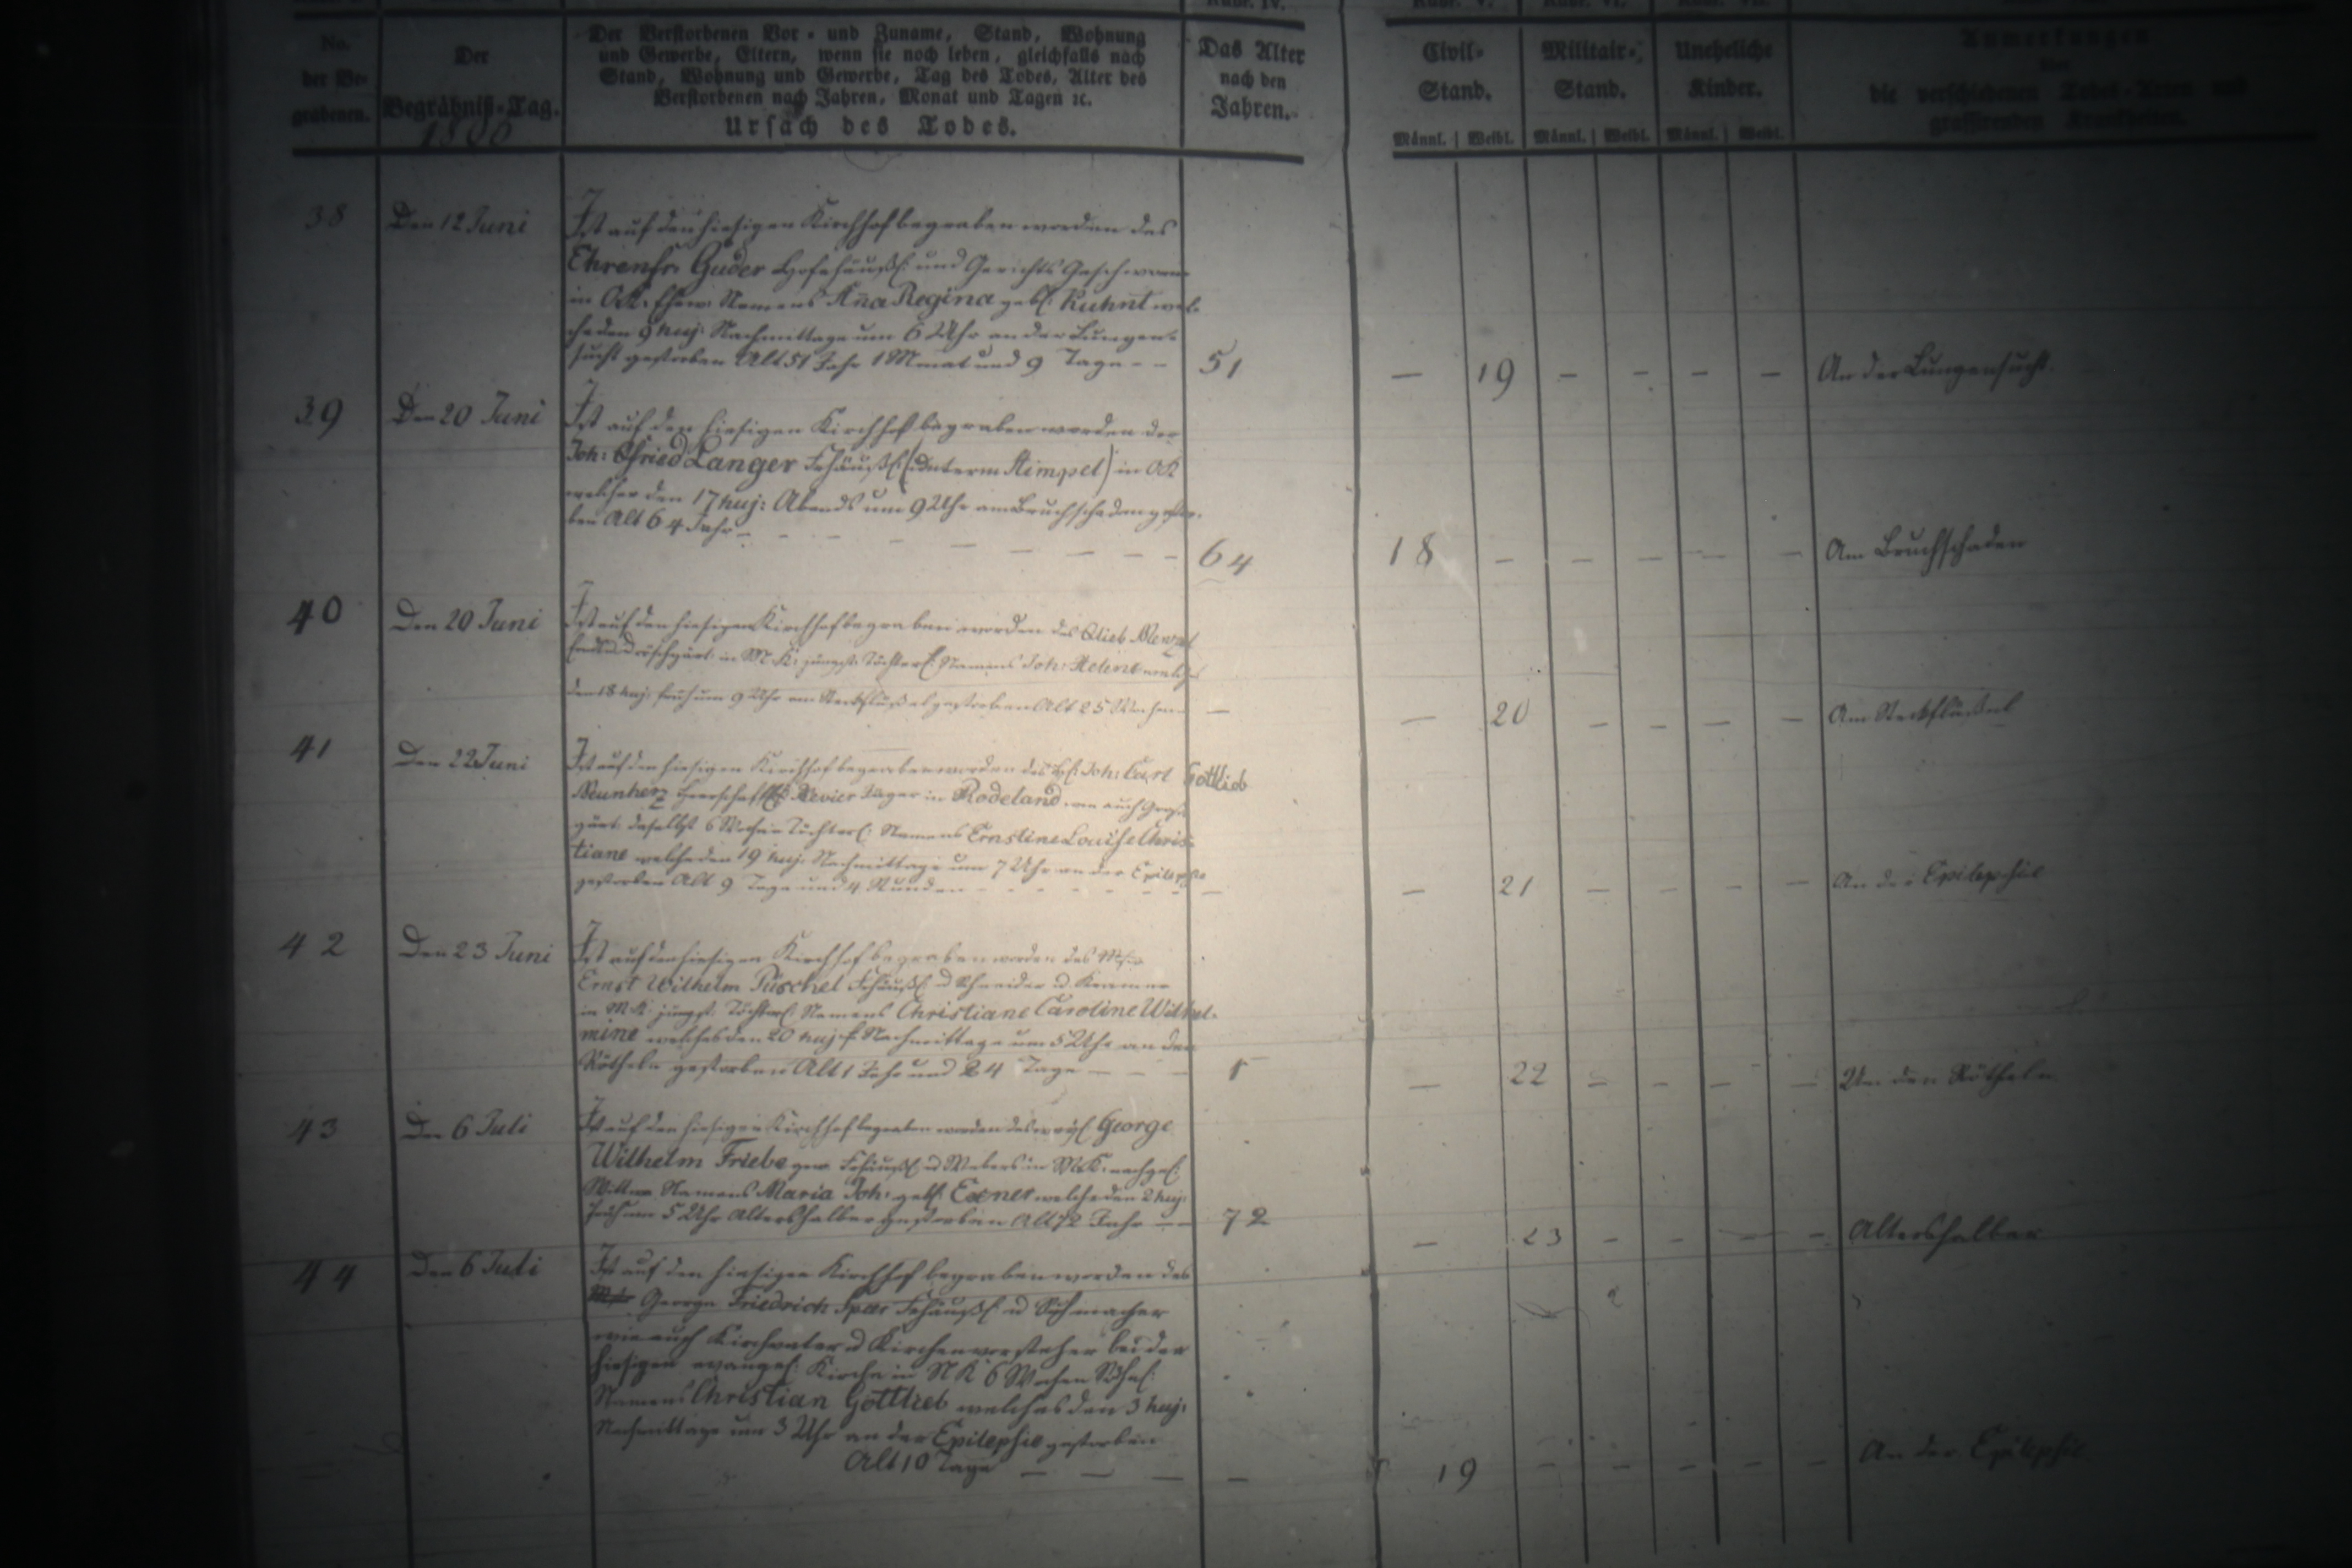 No. der Begräbenen.
Der Begräbniß-Tag.
Der Verstorbenen Vor- und Zuname, Stand, Wohnung
und Gewerbe, Eltern, wenn sie noch leben, gleichfalls nach
Stand, Wohnung und Gewerbe, Tag des Todes, Alter des
Verstorbenen nach Jahren, Monat und Tagen ꝛc.
Ursach des Todes.
Das Alter nach den Jahren.
Civil-Stand.
Militair-Stand.
Uneheliche Kinder.
Anmerkungen
über
die verschiedenen Todes-Arten und
grassirenden Krankheiten.
Männl. Weibl. Männl. Weibl. Männl. Weibl.
38 Den 12 Juni
Ist auf den hiesigen Kirchhof begraben worden des
Ehrenfr. Guder Hofehäußl: und Gerichts Geschworn
in OK. Ehew. Namens Aña Regina geb: Kuhnt wel-
che den 9 huj: Nachmittags um 6 Uhr an der Lungen-
sucht gestorben Alt 51 Jahr 1 Monat und 9 Tage - - 51 — 19 — — — — An der Lungensucht.
39 Den 20 Juni
Ist auf den hiesigen Kirchhof begraben worden der
Joh: Gfried Langer Frhäußl: in OK
welcher den 17 huj: Abends um 9 Uhr am Bruchschaden gestor-
ben Alt 64 Jahr - - - 64 18 — — — — — Am Bruchschaden
40 Den 20 Juni
Ist auf den hiesigen Kirchhof begraben worden des Glieb Menzel
in MK: jüngst. Töchterl: Namens Joh: Helene welche
den 18 huj: früh um 9 Uhr am Steckfluß gestorben Alt 25 Wochen — — 20 — — — — Am Steckfluß
41 Den 22 Juni
Ist auf den hiesigen Kirchhof begraben worden des Joh: Carl Gottlieb
Neunherz Revier Jäger in Rodeland wie auch
daselbst 6 Wochen Töchterl: Namens Ernstine Louise Chris-
tiane welche den 19 huj: Nachmittags um 7 Uhr an der Epilepsie
gestorben Alt 9 Tage und 4 Stunden - - - — — 21 — — — — An der Epilepsie
42 Den 23 Juni
Ist auf den hiesigen Kirchhof begraben worden des Mstr
Ernst Wilhelm Püschel Frhäußl: u Schneider u. Kramer
in MK: jüngst. Töchterl: Namens Christiane Caroline Wilhel-
mine welches den 20 huj: Nachmittags um 5 Uhr an den
Rötheln gestorben Alt 1 Jahr und 24 Tage — — — 1 — 22 — — — — An den Rötheln
43 Den 6 Juli
Ist auf den hiesigen Kirchhof begraben worden des weyl: George
Wilhelm Friebe gew. Frhäußl: u Webers in MK. nachgel:
Wittwe Namens Maria Joh: geb: Exner welche den 2 huj:
früh um 5 Uhr Altershalber gestorben Alt 72 Jahr — — 72 — 23 — — — — Altershalber
44 Den 6 Juli
Ist auf den hiesigen Kirchhof begraben worden des
George Friedrich Speer Frhäußl: u Schmacher
wie auch Kirchvater u Kirchenvorsteher bei der
hiesigen evangel: Kirche in NK 6 Wochen Söhnl:
Namens Christian Gottlieb welches den 3 huj:
Nachmittags um 3 Uhr an der Epilepsie gestorben
Alt 10 Tage — — — — 19 — — — — — An der Epilepsie